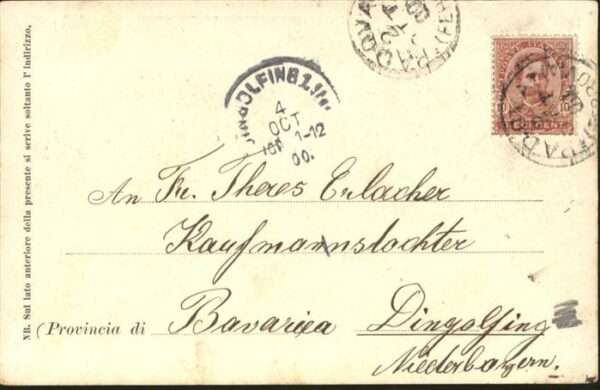 PADOVA
(FE
00
DINGOLFING 2.
4
OCT
1-12
00.
PADOVA
NB. Sul lato anteriore della presente si scrive soltanto l'indirizzo.
An Fr. Theres Erlacher
Kaufmannstochter
(Provincia di Bavariea Dingolfing
Niederbayern.